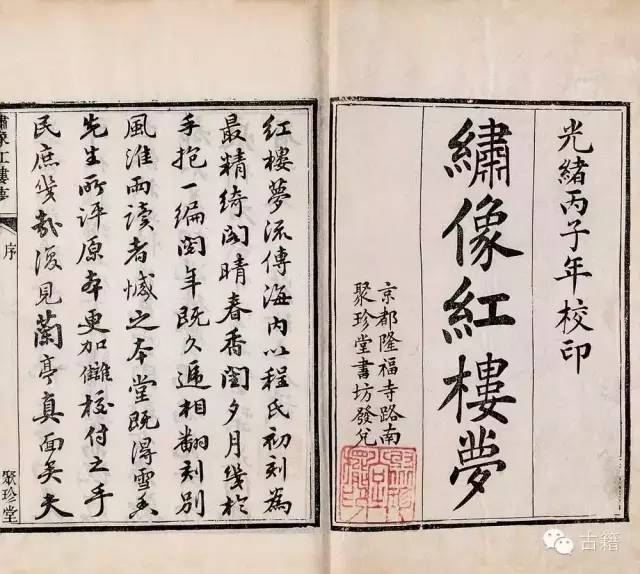 光緒丙子年校印
繡像紅樓夢
京都隆福寺路南
聚珍堂書坊發兌
紅樓夢流傳海內以程氏初刻為
最精綺閣晴春香閨夕月幾於
手抱一編閱年既久遞相翻刻別
風淮雨讀者憾之本堂既得雪香
先生所評原本更加讎校付之手
民庶幾哉復見蘭亭真面矣夫
繡像紅樓夢
序
聚珍堂
古籍